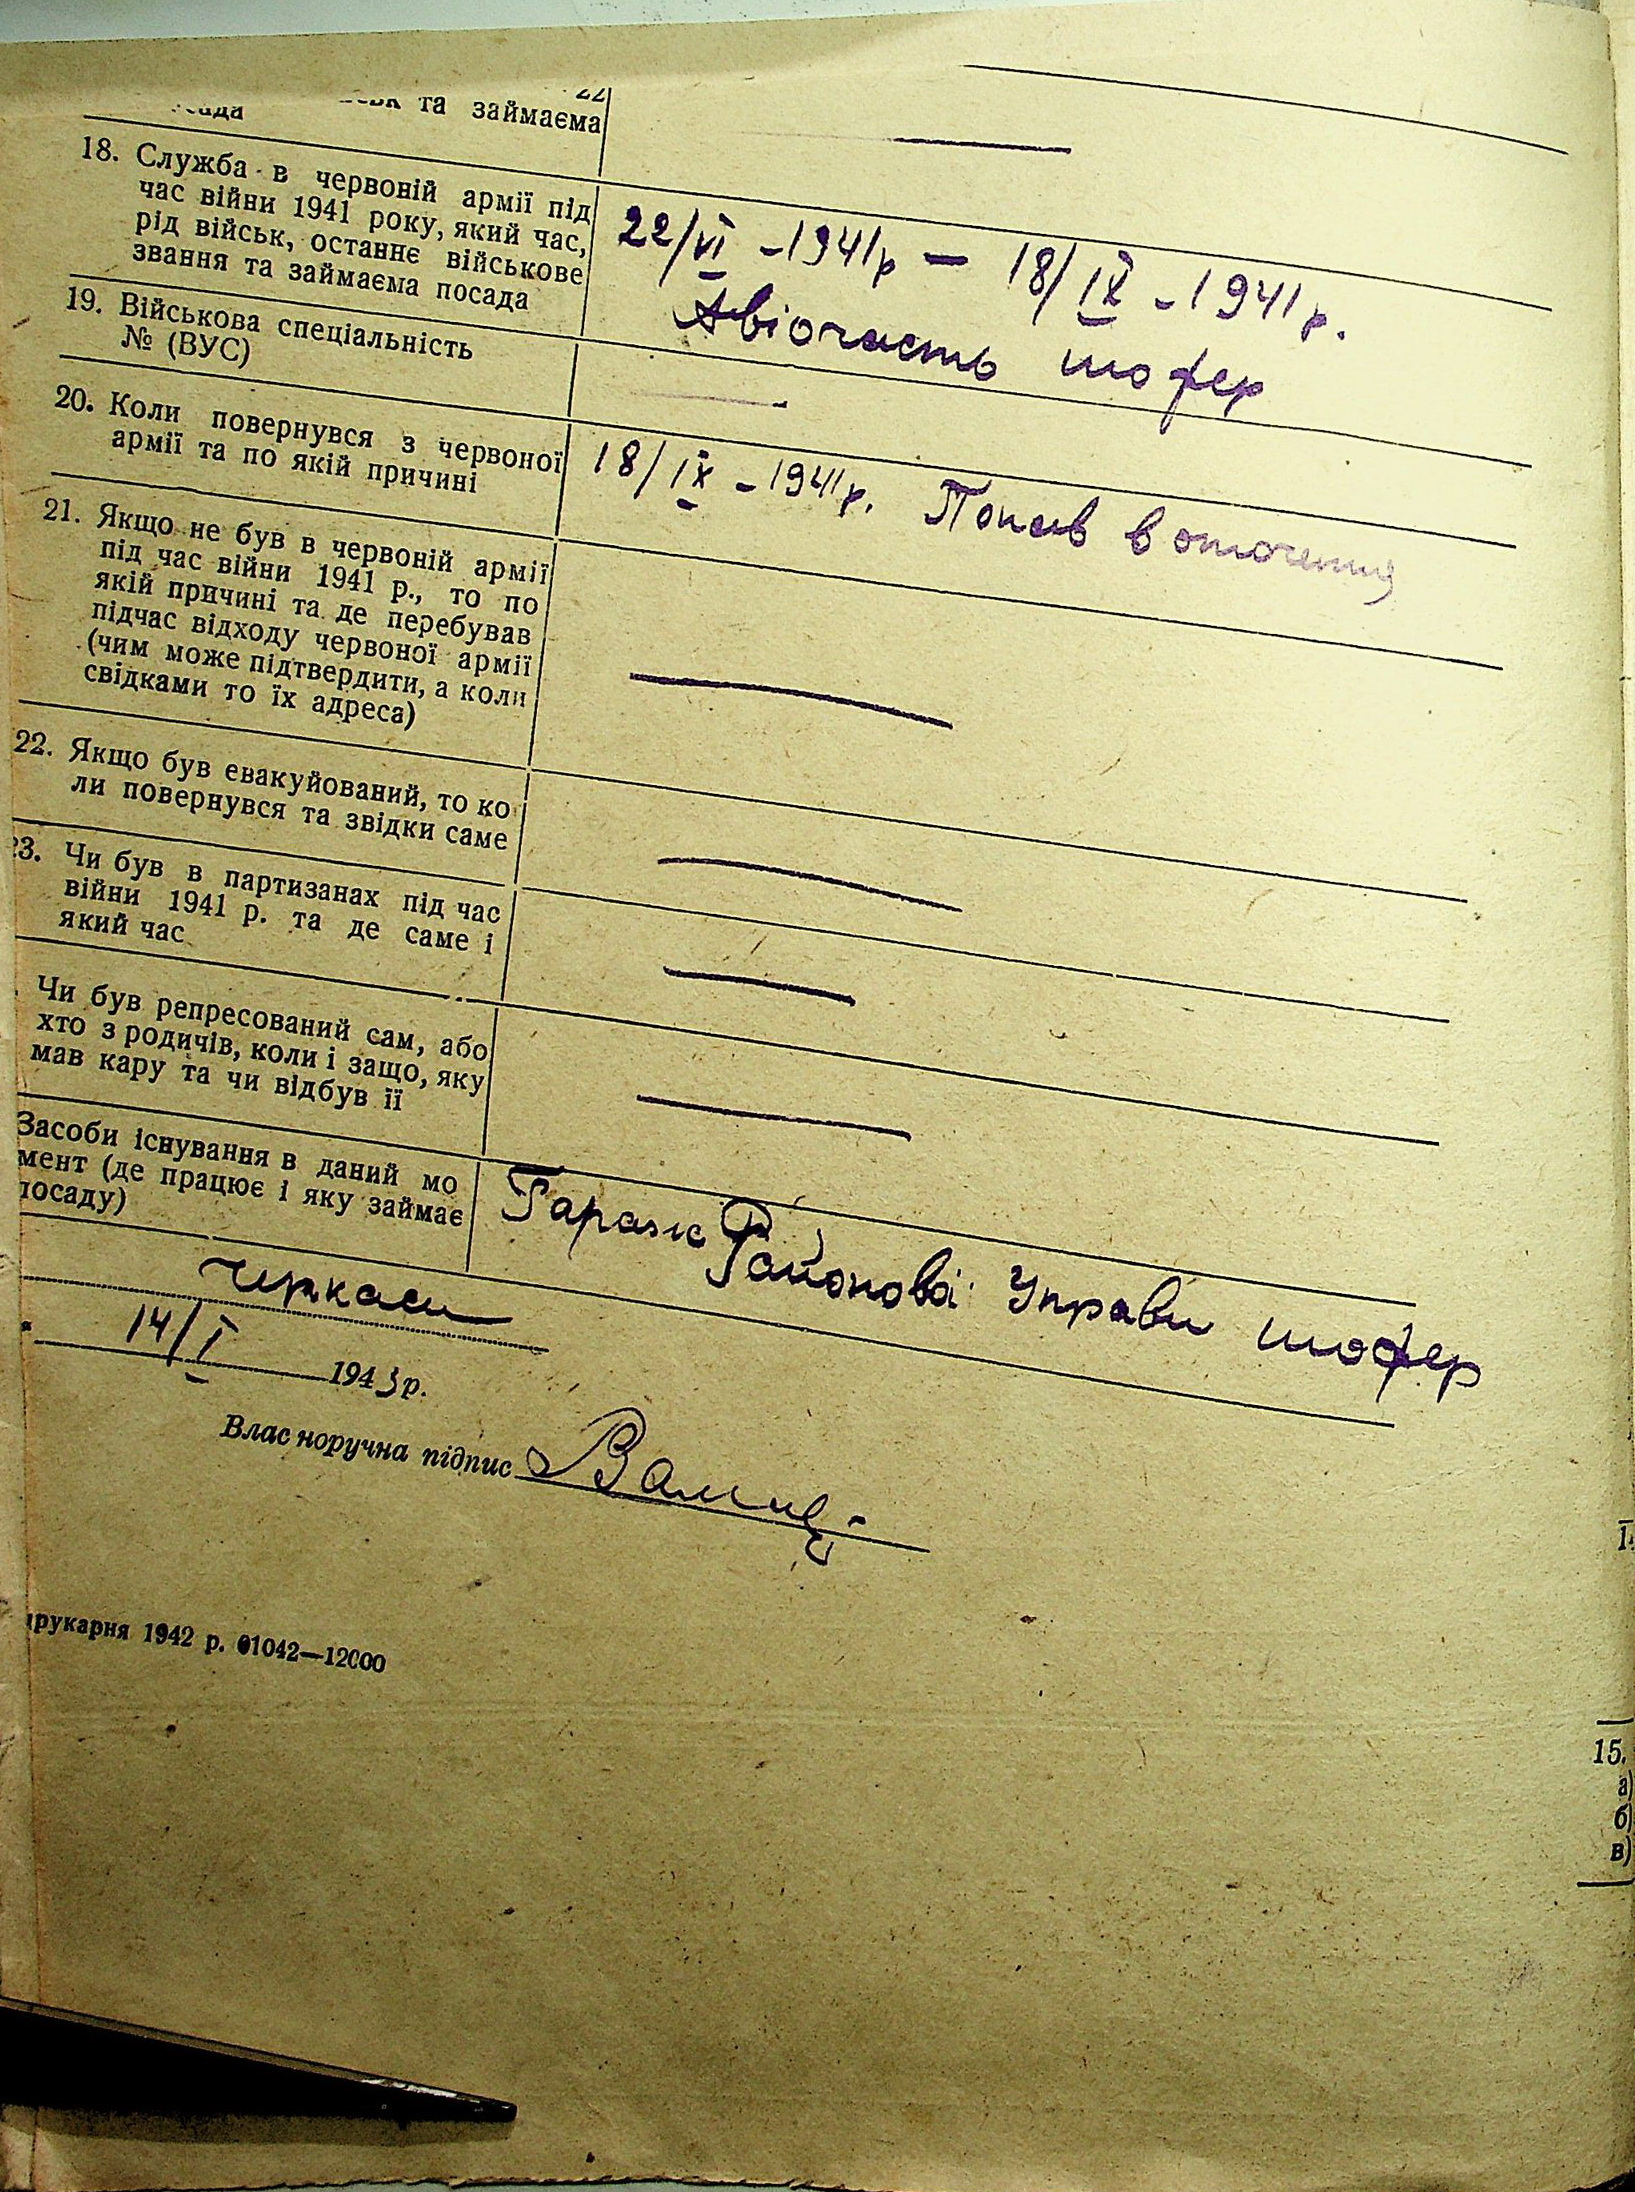 та займаєма
18. Служба в червоній армії під
час війни 1941 року, який час,
рід військ, останнє військове
звання та займаєма посада
22/VI - 1941р — 18/IX - 1941р.
Авіочасть шофер
19. Військова спеціальність
№ (ВУС)
20. Коли повернувся з червоної
армії та по якій причині
18/IX - 1941р. Попав в оточення
21. Якщо не був в червоній армії
під час війни 1941 р., то по
якій причині та де перебував
підчас відходу червоної армії
(чим може підтвердити, а коли
свідками то їх адреса)
22. Якщо був евакуйований, то ко
ли повернувся та звідки саме
23. Чи був в партизанах під час
війни 1941 р. та де саме і
який час
Чи був репресований сам, або
хто з родичів, коли і защо, яку
мав кару та чи відбув її
Засоби існування в даний мо
мент (де працює і яку займає
посаду)
Гараж Районова Управи шофер
Черкаси
14/I 1943 р.
Власноручна підпис
друкарня 1942 р. 01042—12000
15.
а)
б)
в)